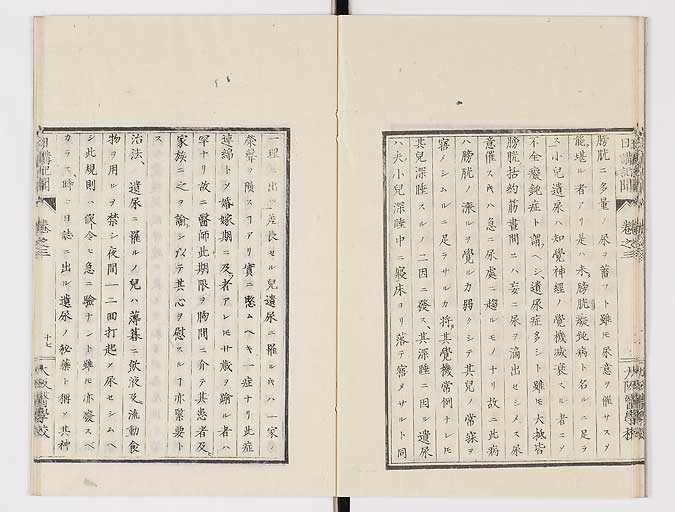 膀胱ニ多量ノ尿ヲ蓄フト雖モ尿意ヲ催サスヲ
能堪ル者アリ是ハ未膀胱癡鈍病ト名ルニ足ラ
ス小兒遺尿ハ知覺神經ノ覺機减衰スル者ニメ
不全癡鈍症ト謂ヘシ遺尿症多シト雖モ大抵皆
膀胱括約筋晝間ニハ妄ニ尿ヲ滴出セシメス尿
意催スキハ急ニ尿處ニ趨ルモノナリ故ニ此病
ハ膀胱ノ漲ルヲ覺ルカ弱クシテ其兒ノ常寐ヲ
寤ノシムルニ足ラサルカ將其覺機常例ナレモ
其兒深睡スルノ二因ニ發ス其深睡ニ因ル遺尿
ハ夫小兒深睡中ニ寢床ヨリ落テ寤メサルト同
日講記聞
卷之三
大阪醫學校
一理ニ出ツ差長セル兒遺尿ニ罹ルキハ一家ノ
榮譽ヲ損スヿアリ實ニ愍ムヘキ一症ナリ此症
連綿トメ婚嫁期ニ及者アレモ廿歲ヲ踰ル者ハ
罕ナリ故ニ醫師此期限ヲ胸間ニ介テ其患者及
家族ニ之ヲ諭シ以テ其心ヲ慰スルヿ亦緊要ト
ス
治法、遺尿ニ罹ルノ兒ハ薄暮ニ飲液及流動食
物ヲ用ルヲ禁シ夜間一二回打起メ尿セシムヘ
シ此規則ハ假令ヒ急ニ驗ナシト雖モ亦癈スヘ
カラス、時ニ日誌ニ出ル遺尿ノ秘藥ト稱メ其神
日講記聞
卷之三
十七
大阪醫學校